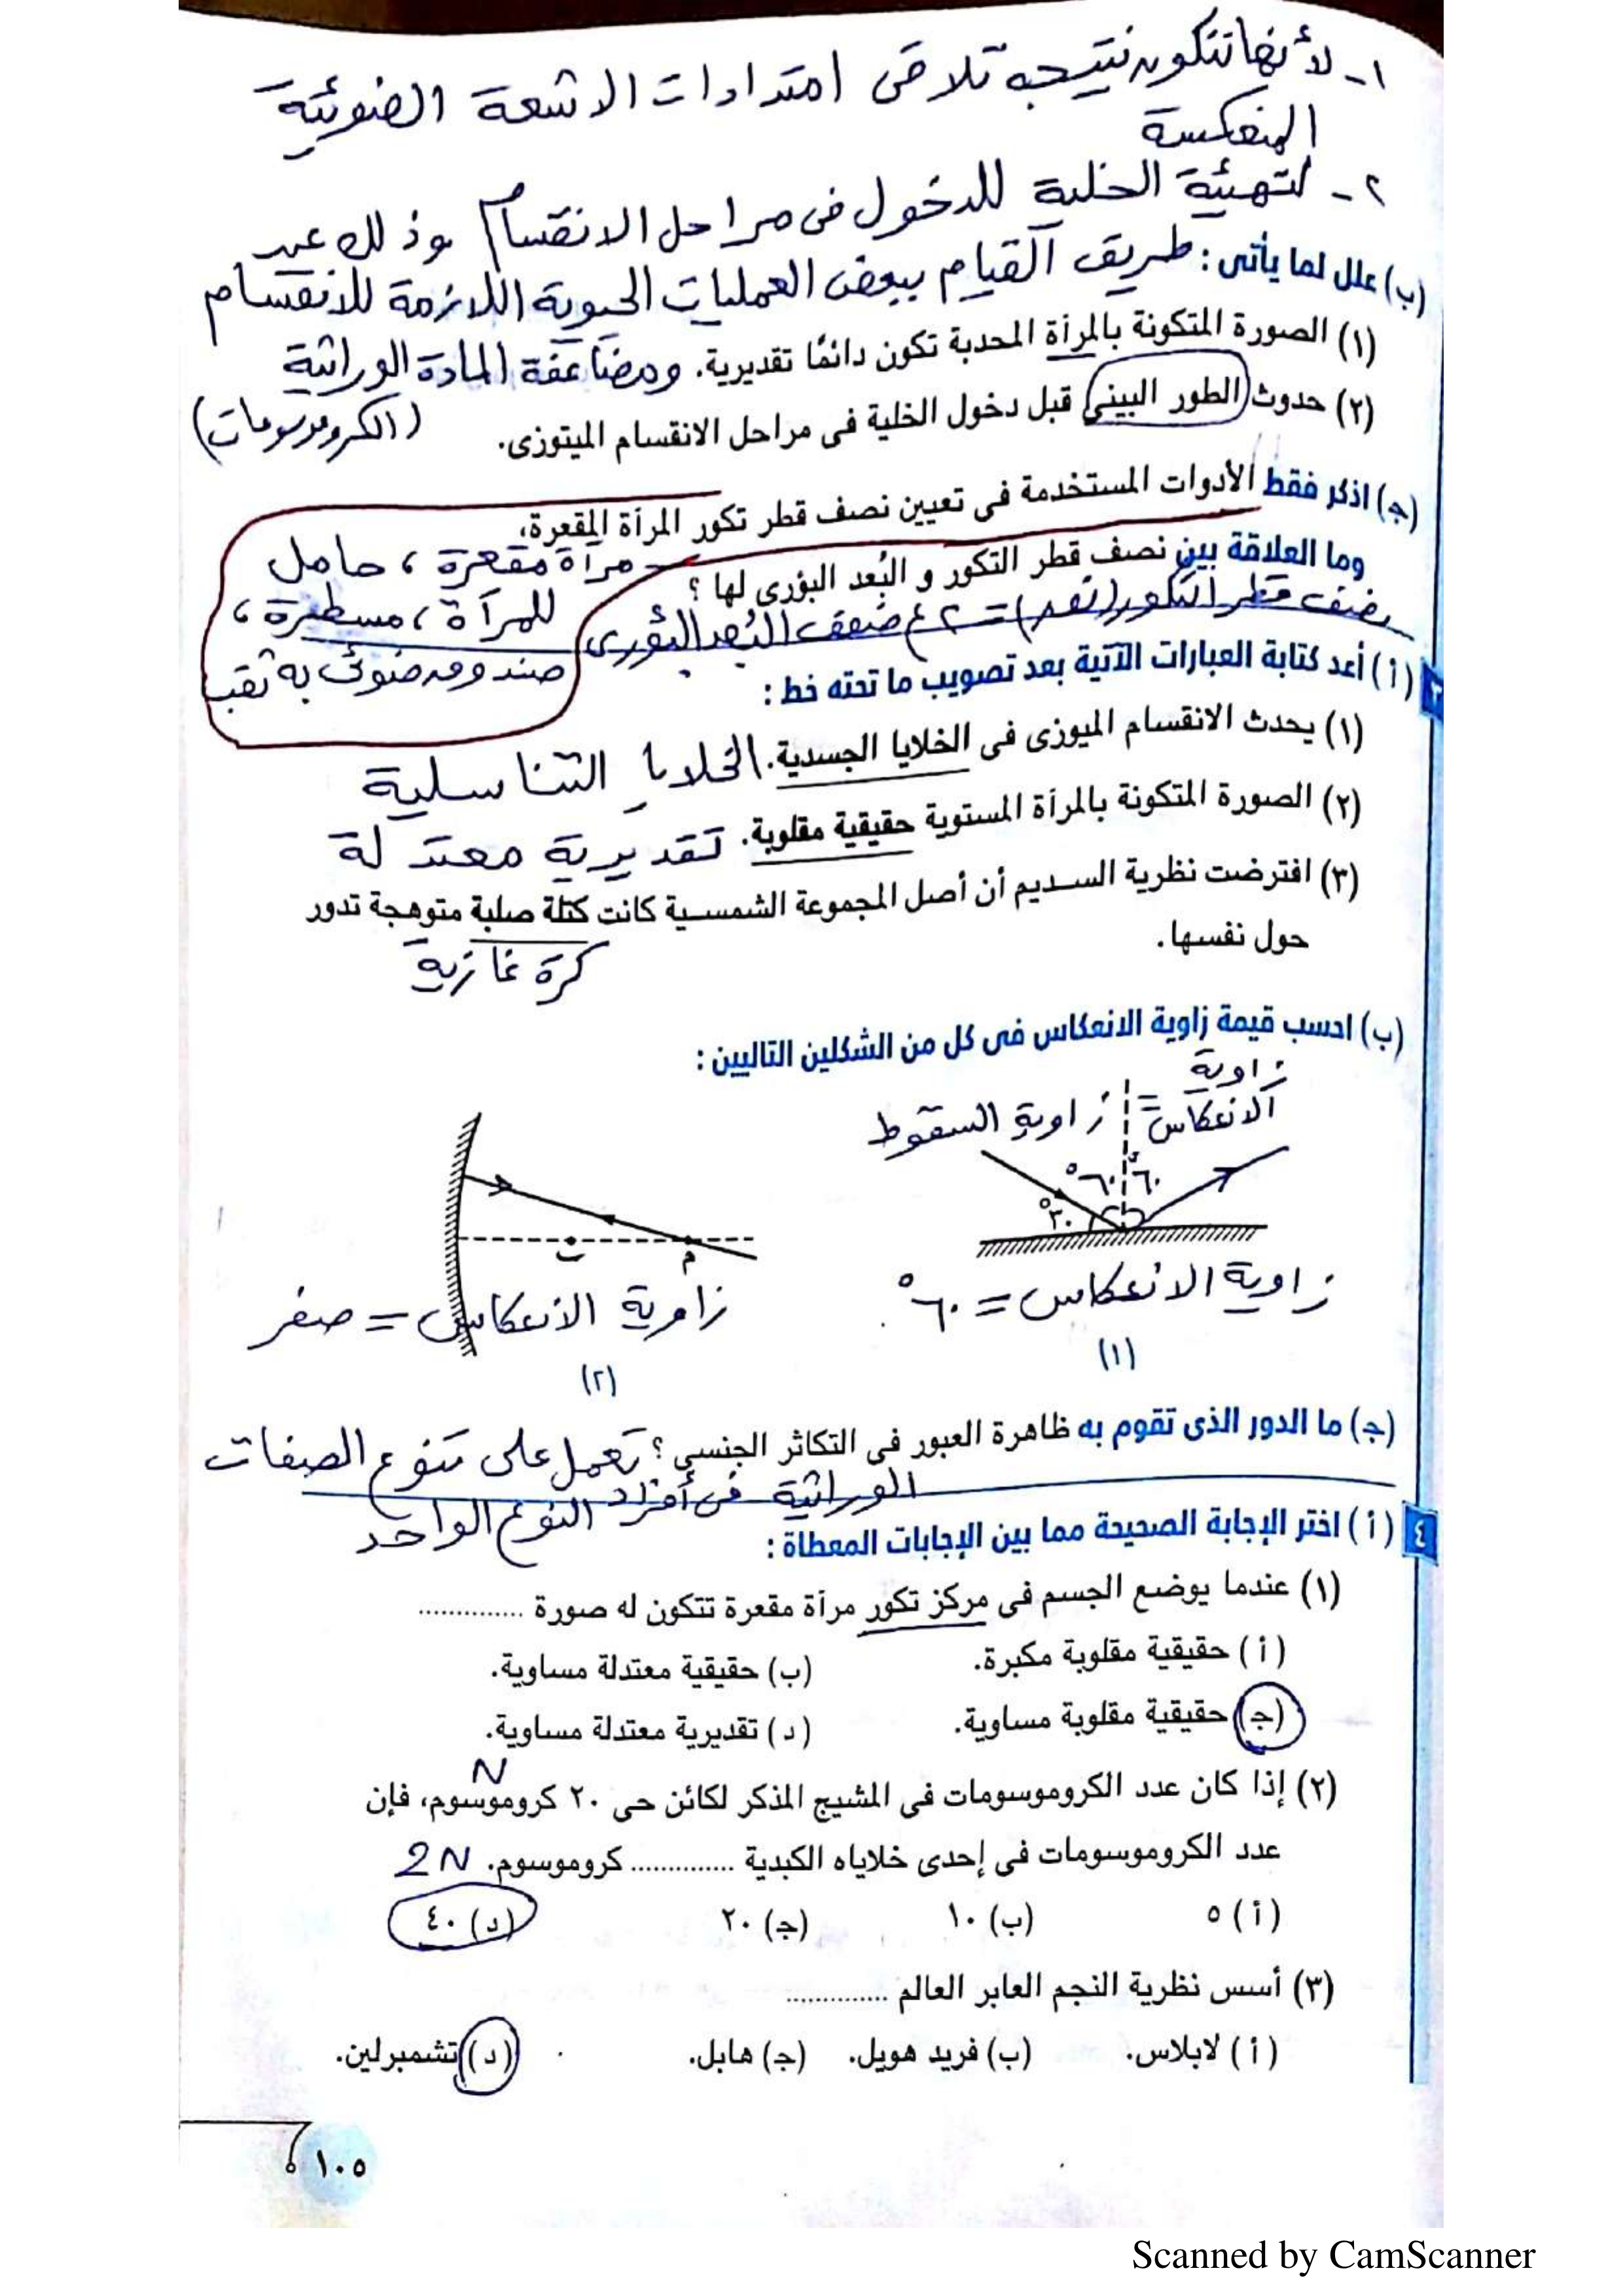 ١- لأنها تتكون نتيجه تلاقى امتدادات الاشعة الضوئية
المنعكسة
٢- لتهيئة الخلية للدخول فى مراحل الانقسام وذلك عن
(ب) علل لما يأتى : طريق القيام ببعض العمليات الحيوية اللازمة للانقسام
(١) الصورة المتكونة بالمرآة المحدبة تكون دائمًا تقديرية. ومضاعفة المادة الوراثية
(٢) حدوث الطور البينى قبل دخول الخلية فى مراحل الانقسام الميتوزى. (الكروموسومات)
(جـ) اذكر فقط الأدوات المستخدمة فى تعيين نصف قطر تكور المرآة المقعرة،
مرآة مقعرة ، حامل
وما العلاقة بين نصف قطر التكور و البُعد البؤرى لها ؟
للمرآة ، مسطرة ،
نصف قطر التكور (نق) = ٢ ع ضعف البُعد البؤرى
صندوق ضوئى به ثقب
٣ (أ) أعد كتابة العبارات الآتية بعد تصويب ما تحته خط :
(١) يحدث الانقسام الميوزى فى الخلايا الجسدية. الخلايا التناسلية
(٢) الصورة المتكونة بالمرآة المستوية حقيقية مقلوبة. تقديرية معتدلة
(٣) افترضت نظرية السديم أن أصل المجموعة الشمسية كانت كتلة صلبة متوهجة تدور
حول نفسها.
كرة غازية
(ب) احسب قيمة زاوية الانعكاس فى كل من الشكلين التاليين :
زاوية
الانعكاس = زاوية السقوط
٦٠° ٦٠°
٣٠°
ب م
زاوية الانعكاس = ٦٠°
زاوية الانعكاس = صفر
(١)
(٢)
(جـ) ما الدور الذى تقوم به ظاهرة العبور فى التكاثر الجنسى ؟ تعمل على تنوع الصفات
الوراثية فى أفراد النوع الواحد
٤ (أ) اختر الإجابة الصحيحة مما بين الإجابات المعطاة :
(١) عندما يوضع الجسم فى مركز تكور مرآة مقعرة تتكون له صورة ..............
(أ) حقيقية مقلوبة مكبرة. (ب) حقيقية معتدلة مساوية.
(جـ) حقيقية مقلوبة مساوية. (د) تقديرية معتدلة مساوية.
N
(٢) إذا كان عدد الكروموسومات فى المشيج المذكر لكائن حى ٢٠ كروموسوم، فإن
عدد الكروموسومات فى إحدى خلاياه الكبدية .............. كروموسوم. 2N
(أ) ٥ (ب) ١٠ (جـ) ٢٠ (د) ٤٠
(٣) أسس نظرية النجم العابر العالم ..............
(أ) لابلاس. (ب) فريد هويل. (جـ) هابل. (د) تشمبرلين.
١٠٥
Scanned by CamScanner